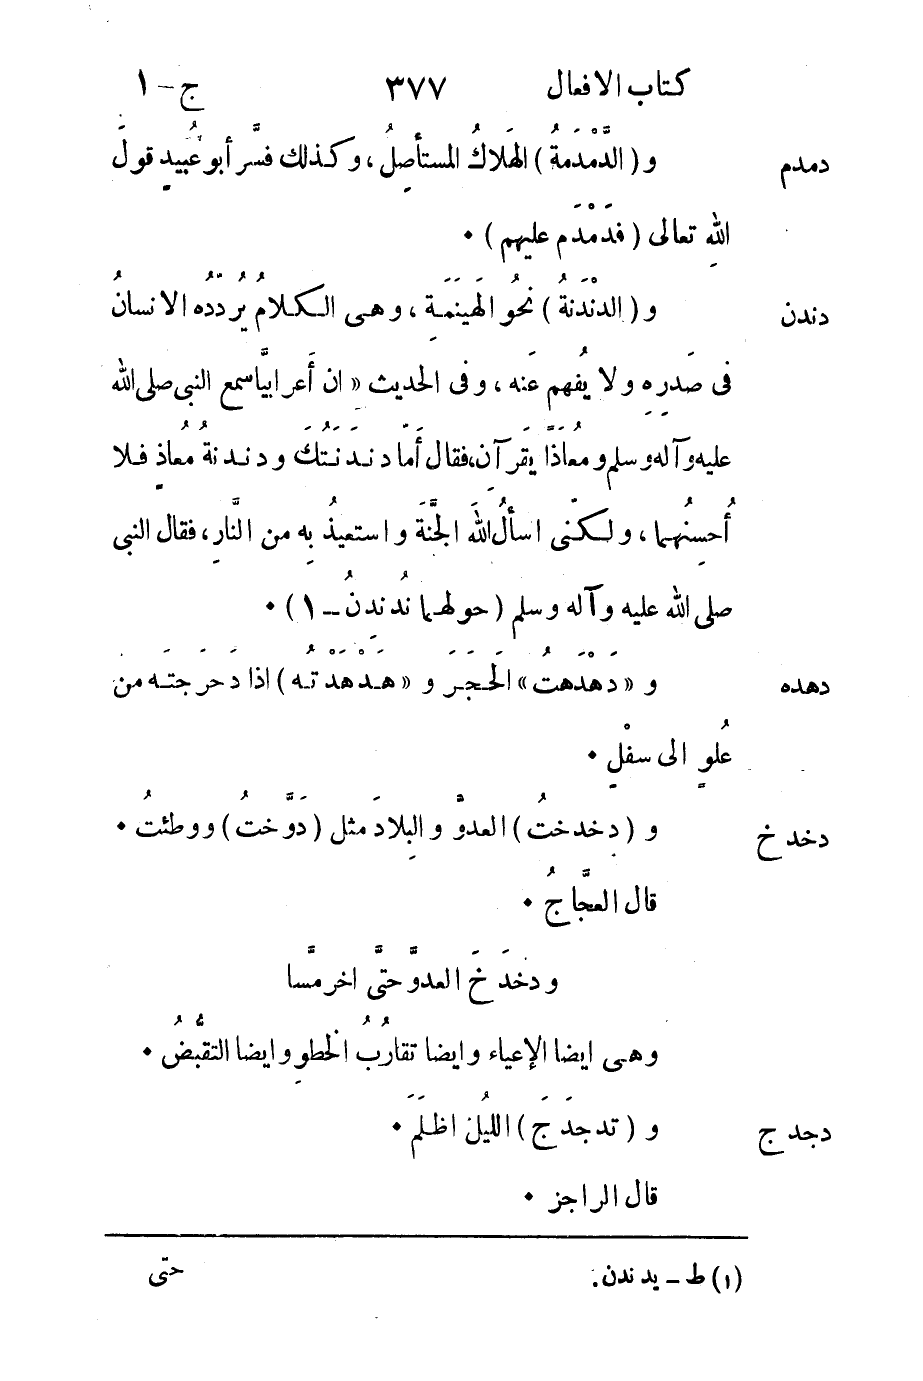 كتاب الافعال ٣٧٧ ج – ١
دمدم و ( الدَّمْدَمةُ ) الهَلاكُ المستأصِلُ ، وكذلك فسَّر أبو عُبيدٍ قولَ
اللهِ تعالى ( فدَمْدَم عليهم ) ٠
دندن و ( الدنْدَنةُ ) نحوُ الهَينَمَةِ ، وهى الكلامُ يُردّدُه الانسانُ
فى صَدرِه ولا يُفهم عنَه ، وفى الحديث « ان أَعرابيَّا سمع النبى صلى الله
عليه وآله وسلم ومُعاذًا يَقرَآنِ، فقال أمّا دندَنَتُكَ ودندنةُ مُعاذٍ فلا
أُحسِنُهما ، ولكنّى اسألُ اللهَ الجَنَّةَ واستعيذُ بِه من النَّارِ ، فقال النبى
صلى الله عليه وآله وسلم ( حولهِما نُدندنُ – ١ ) ٠
دهده و « دَهْدَهتُ » الَحجَر و « هَدْهَدْتُه » اذا دَحرَجتَه من
عُلوٍ الى سفْلٍ ٠
دخدخ و ( دخدختُ ) العدوَّ والبِلادَ مثل ( دَوَّختُ ) ووطئتُ ٠
قال العجَّاجُ ٠
ودخدَخَ العدوَّ حتَّى اخرمَّسا
وهى ايضا الإعياء وايضا تقارُبُ الخطوِ وايضا التقبُّضُ ٠
دجدج و ( تدجدَجَ ) الليلُ اظلَمَ ٠
قال الراجز ٠
(١) ط – يدندن .
حتّى